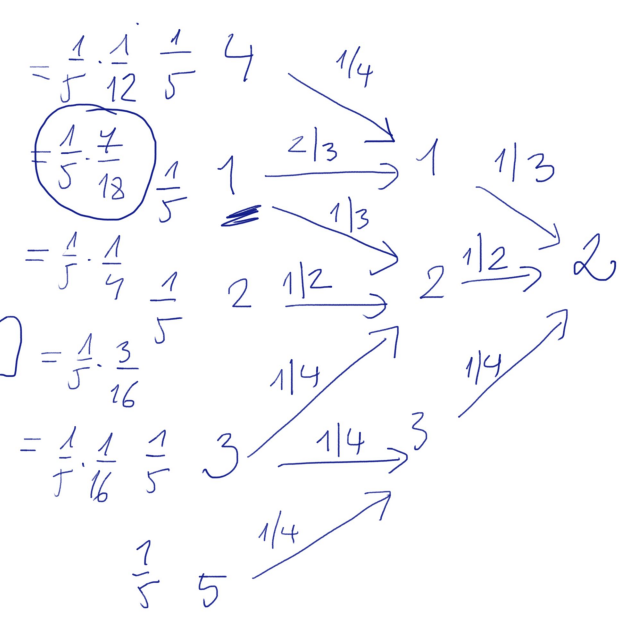 = 1/5 · 1/12 1/5 4 1/4
= 1/5 · 7/18 1/5 1 2/3 1 1/3
1/3
= 1/5 · 1/4 1/5 2 1/2 2 1/2 2
= 1/5 · 3/16 1/4 1/4
= 1/5 · 1/16 1/5 3 1/4 3
1/4
1/5 5